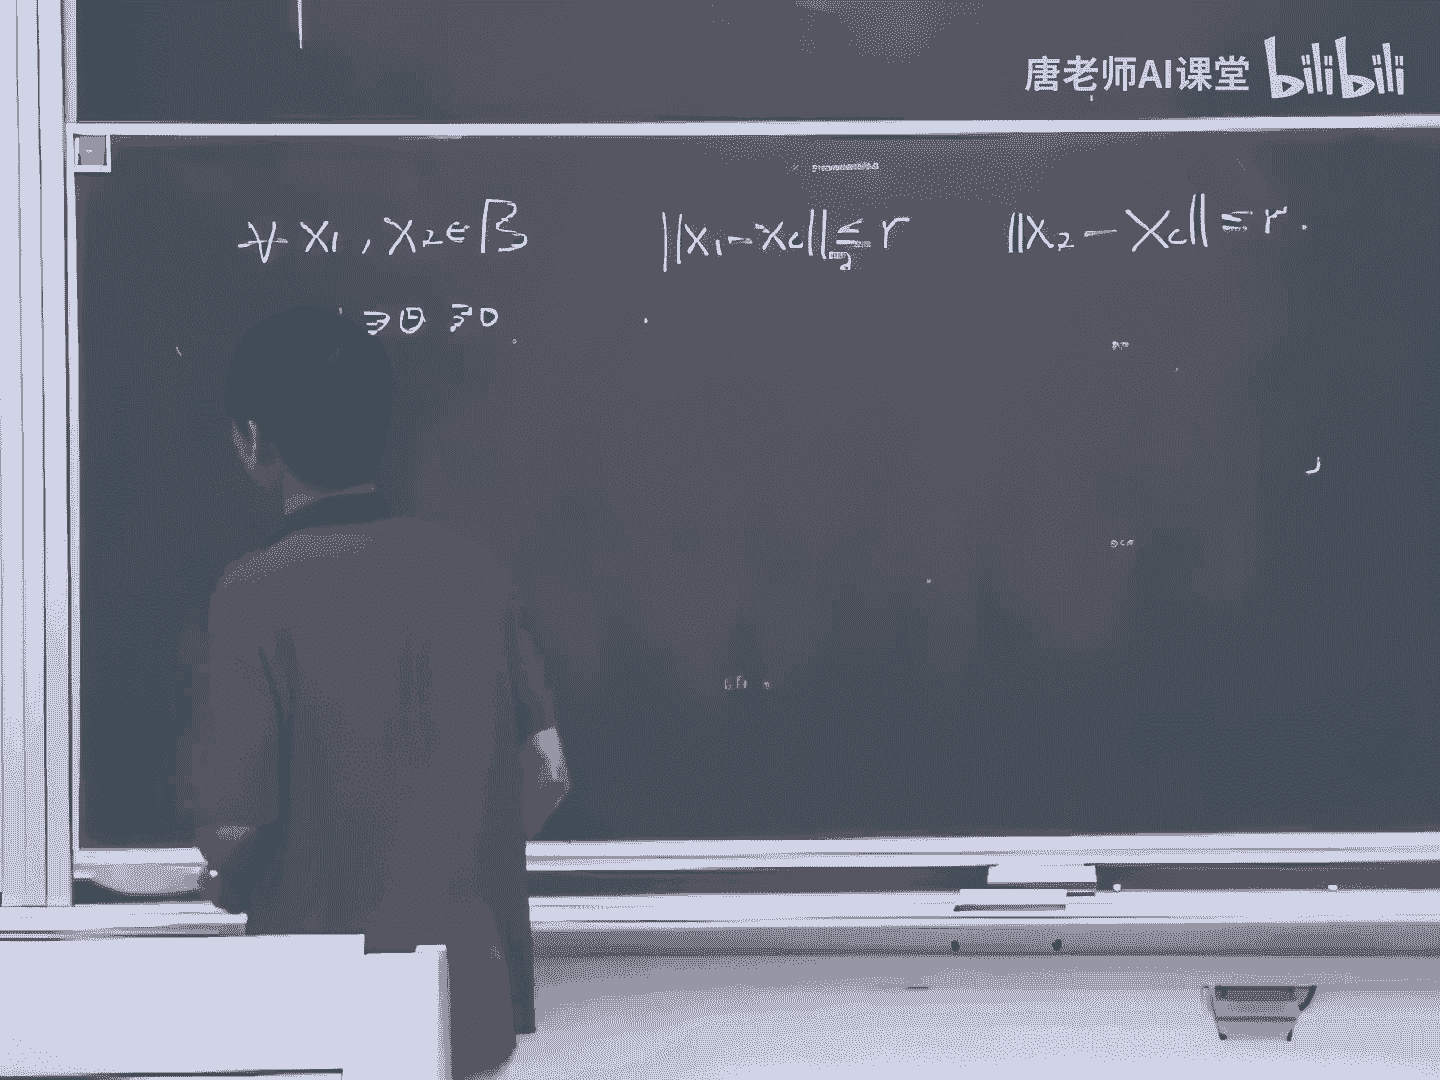 唐老师AI课堂 bilibili
∀ x₁, x₂ ∈ B ||x₁ - x_c||₂ ≤ r ||x₂ - x_c|| ≤ r.
≥ θ ≥ 0